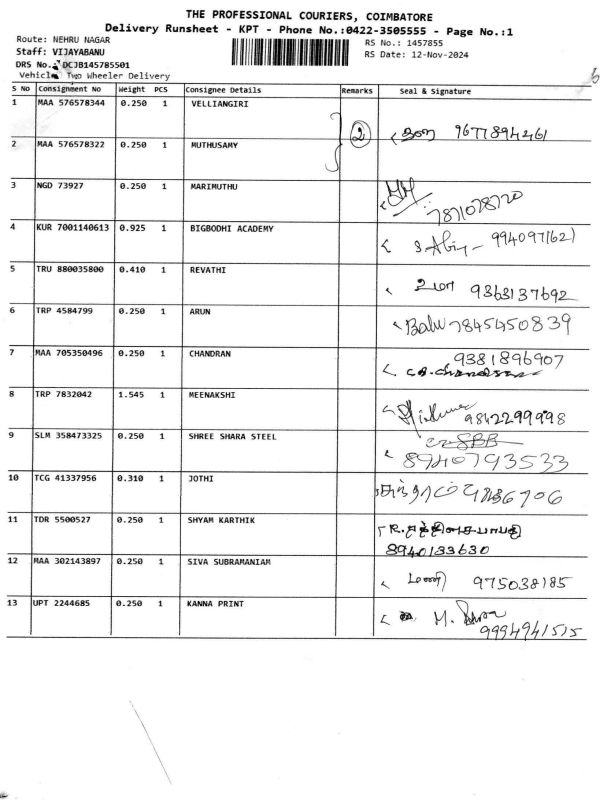 THE PROFESSIONAL COURIERS, COIMBATORE
Delivery Runsheet - KPT - Phone No.:0422-3505555 - Page No.:1
Route: NEHRU NAGAR
RS No.: 1457855
Staff: VIJAYABANU
RS Date: 12-Nov-2024
DRS No. DCJB145785501
Vehicle Two Wheeler Delivery
S No Consignment No Weight PCS Consignee Details Remarks Seal & Signature
1 MAA 576578344 0.250 1 VELLIANGIRI
2 9677894461
2 MAA 576578322 0.250 1 MUTHUSAMY
3 NGD 73927 0.250 1 MARIMUTHU
7871078720
4 KUR 7001140613 0.925 1 BIGBODHI ACADEMY
9940971621
5 TRU 880035800 0.410 1 REVATHI
உமா 9363137692
6 TRP 4584799 0.250 1 ARUN
Babu 7845450839
7 MAA 705350496 0.250 1 CHANDRAN
9381896907
8 TRP 7832042 1.545 1 MEENAKSHI
9842299998
9 SLM 358473325 0.250 1 SHREE SHARA STEEL
8940793533
10 TCG 41337956 0.310 1 JOTHI
11 TDR 5500527 0.250 1 SHYAM KARTHIK
8940133630
12 MAA 302143897 0.250 1 SIVA SUBRAMANIAM
மணி 975038185
13 UPT 2244685 0.250 1 KANNA PRINT
M.
9994941515